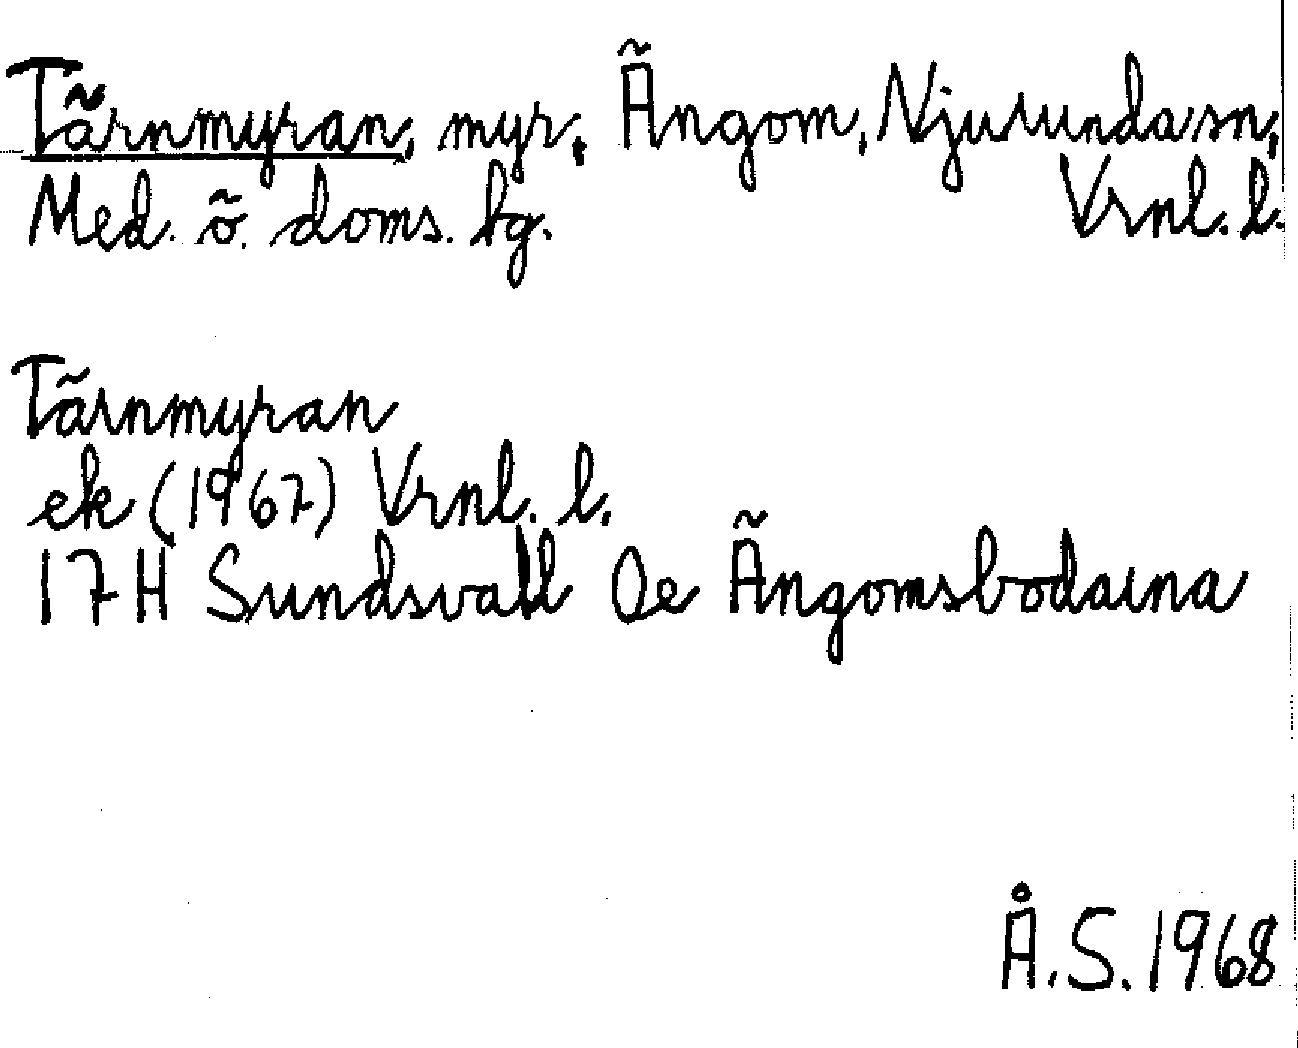 Tärnmyran, myr, Ängom, Njurunda sn,
Med. ö. doms. bg. Vrnl. l.
Tärnmyran
ek (1967) Vrnl. l.
17H Sundsvall Oe Ängomsbodarna
Å.S. 1968